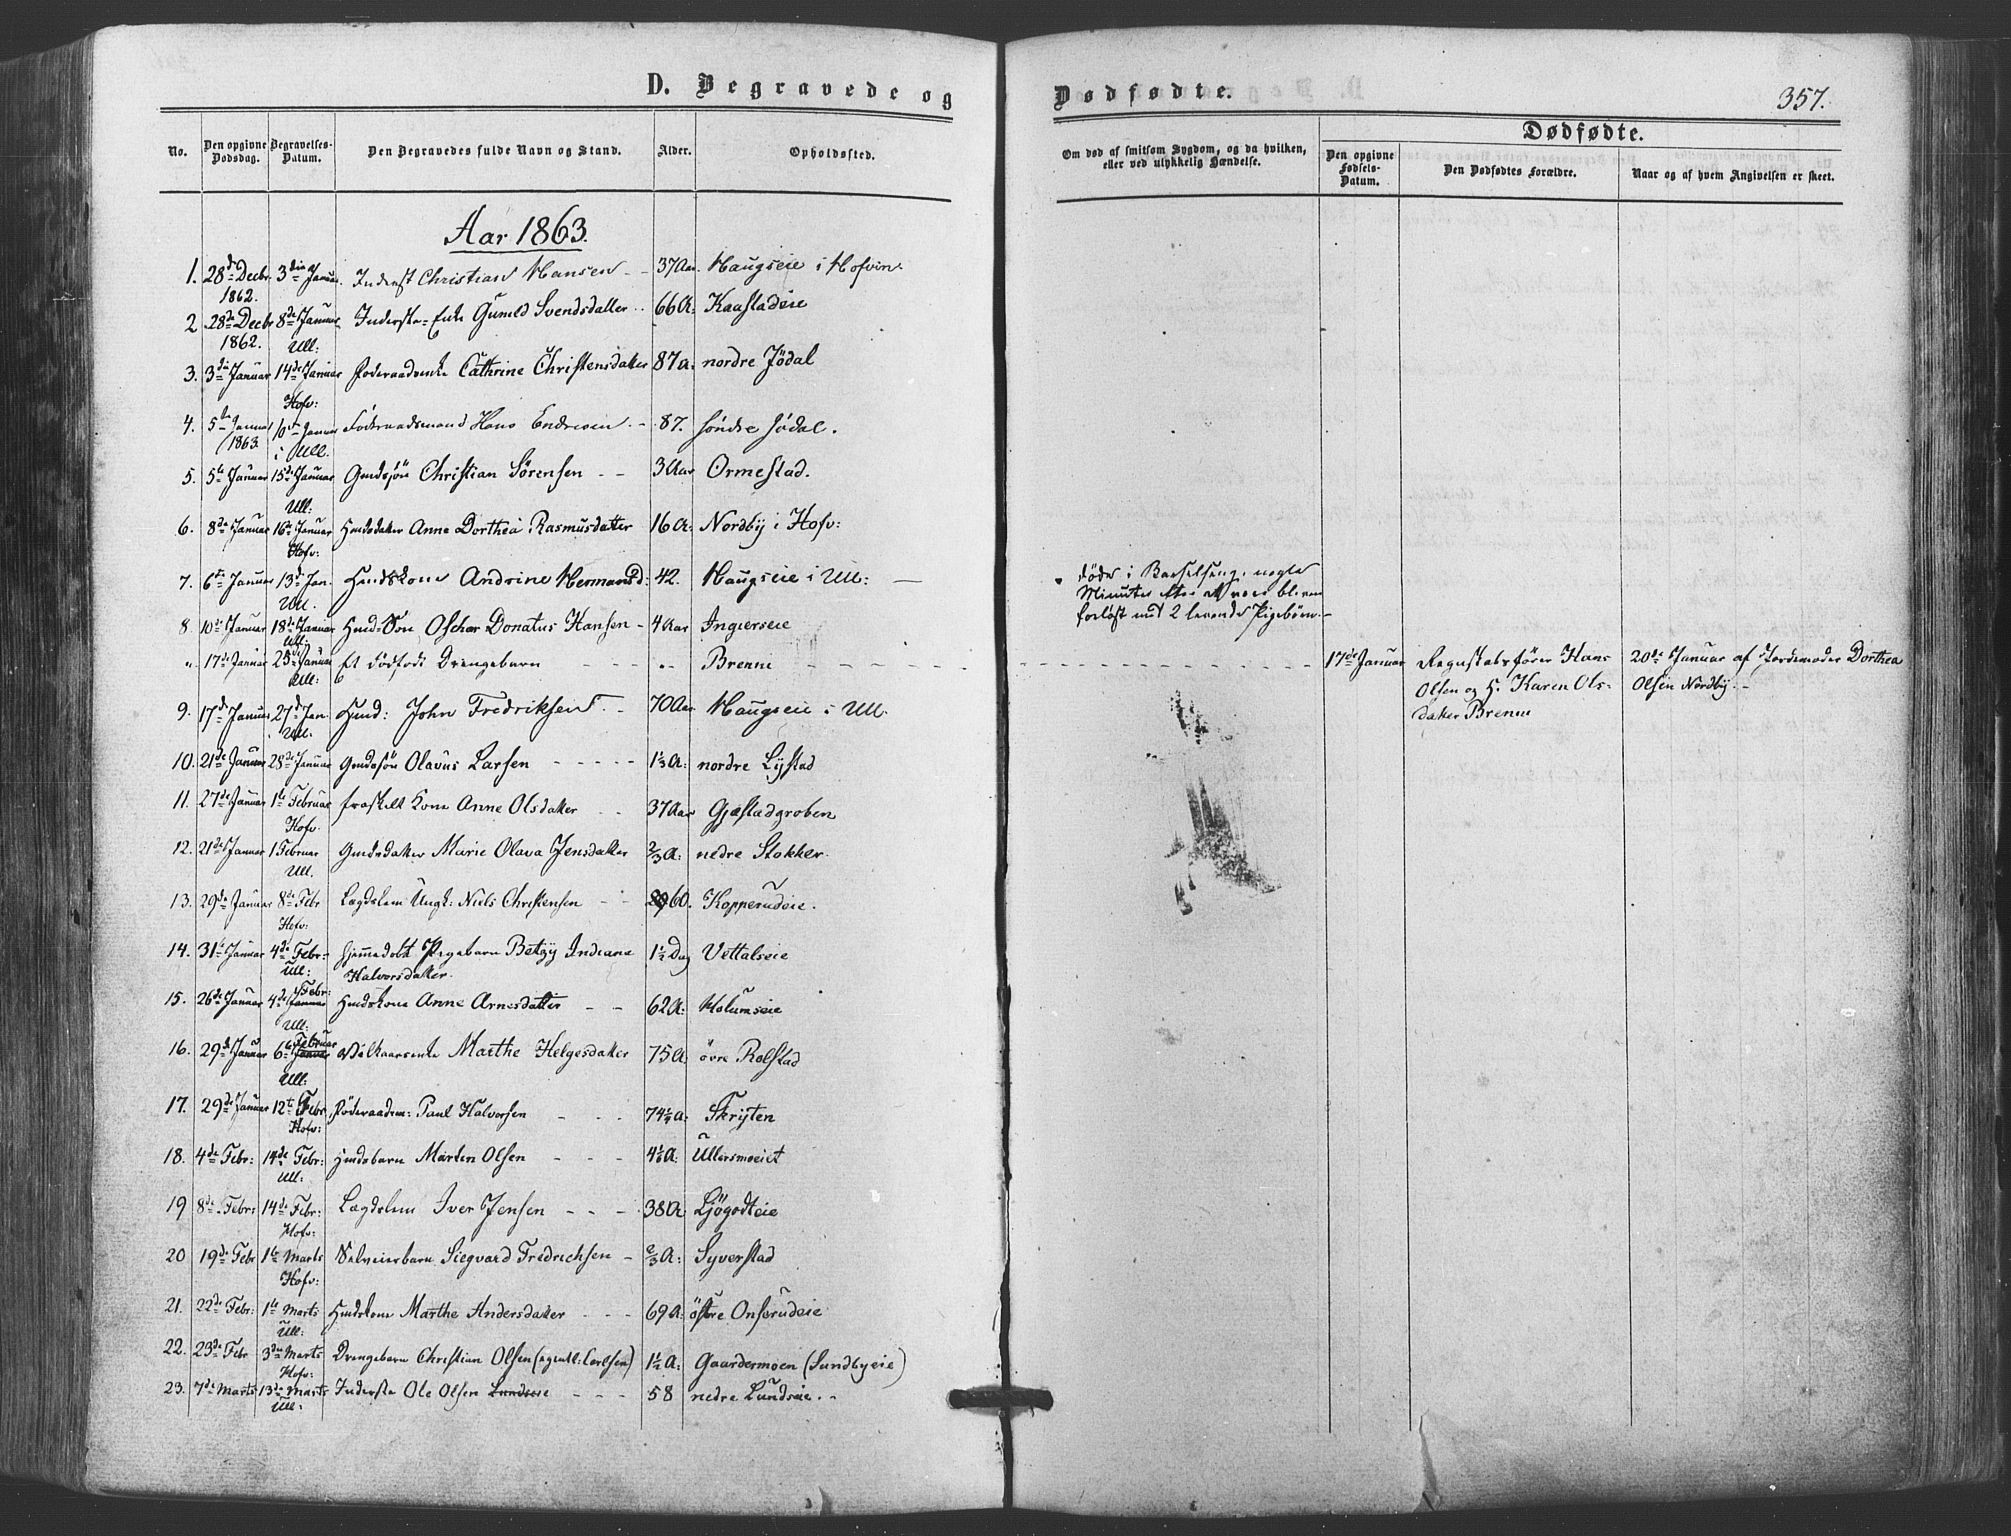 D. Begravede og
Dødfødte.
357.
No.
Den opgivne Dødsdag.
Begravelses-Datum.
Den Begravedes fulde Navn og Stand.
Alder.
Opholdssted.
Om død af smitsom Sygdom, og da hvilken,
eller ved ulykkelig Hændelse.
Dødfødte.
Den opgivne Fødsels-Datum.
Den Dødfødtes Forældre.
Naar og af hvem Angivelsen er skeet.
Aar 1863.
1. 28de Decbr. 3die Januar. Inderst Christian Hansen - - 37 Aar. Haugseie i Hofvin.
1862.
2 28de Decbr 8de Januar Inderste-Enke Gunild Svendsdatter .. 66 A: Kaastadeie
1862. Ull:
3. 3die Januar 14de Januar Føderaadsenke Cathrine Christensdatter 87 A: nordre Jødal
Hofv:
4. 5te Januar 10de Januar Føderaadsmand Hans Endresen - - 87. søndre Jødal.
1863. i Ull.
5. 5te Januar 15de Januar Gmdssøn Christian Sørensen - - 3 Aar Ormestad.
Ull:
6. 8de Januar 16de Januar Hmdsdatter Anne Dorthea Rasmusdatter 16 A: Nordby i Hofv:
Hofv:
7. 6te Januar 13d Jan. Hmdskone Andrine Hermansd: 42. Haugseie i Ull: —
Ull.
døde i Barselseng, nogle
Minuter efter at være bleven
forløst med 2 levende Pigebørn. -
8. 10de Januar 18de Januar Hmds Søn Oscher Donatus Hansen - 4 Aar Ingierseie
Ull:
" 17de Januar 25de Januar Et dødfødt Drengebarn - - - - " Brenne - - - -
Ull:
17de Januar Regnskabsfører Hans 20de Januar af Jordemoder Dorthea
Olsen og H. Karen Ols- Olsen Nordby. -
datter Brenne
9. 17de Januar 27d Jan. Hmd: John Fredriksen - 70 Aar Haugseie i Ull.
Ull.
10. 21de Januar 28de Januar Gmdssøn Olavus Larsen - - - - - 1⅓ A: nordre Lystad
11. 27de Januar 1te Februar fraskilt Kone Anne Olsdatter - - 37 Aar Gjestadgroben
Hofv.
12. 21de Januar 1 Februar Gmdsdatter Marie Olava Jensdatter ⅔ A: nedre Stokker.
Ull.
13. 29de Januar 8de Febr Lægdslem Ungk: Niels Christensen - - 60. Kopperudeie.
Hofv:
14. 31te Januar 4de Febr: hjemmedøbt Pigebarn Betzy Indiana 1½ Dag Vettalseie
Ull: Halvorsdatter.
15. 26de Januar 4de Febr: Januar Hmdskone Anne Arnesdatter - - 62 A: Holumseie
Ull:
16. 29d Januar 6te Februar Januar Vilkaarsenke Marthe Helgesdatter 75 A øvre Rolstad
Ull:
17. 29de Januar 12te Febr Føderaadsm: Paul Halvorsen - - - 74½ A: Skryten
Hofv:
18. 4de Febr: 14de Febr: Hmdsbarn Marten Olsen - - - A: Ullersmoeiet
Ull:
19 8de Febr: 14de Febr: Lægdslem Iver Jensen - - - 38 A Ljøgodteie
Hofv:
20 19de Febr 1te Marts Selveierbarn Siegvard Fredrichsen - ⅔ A: Syverstad
Hofv:
21. 22de Febr: 1te Marts Hmdskone Marthe Andersdatter - - - 69 A: østre Onserudeie
Ull:
22. 23de Febr 3die Marts Drengebarn Christian Olsen (egentl: Carlsen) 1½ A: Gaardermoen (Sundbyeie)
Hofv:
23. 7de Marts 13de Marts Inderste Ole Olsen Lundseie - - - 58 nedre Lundseie. -
Ull: